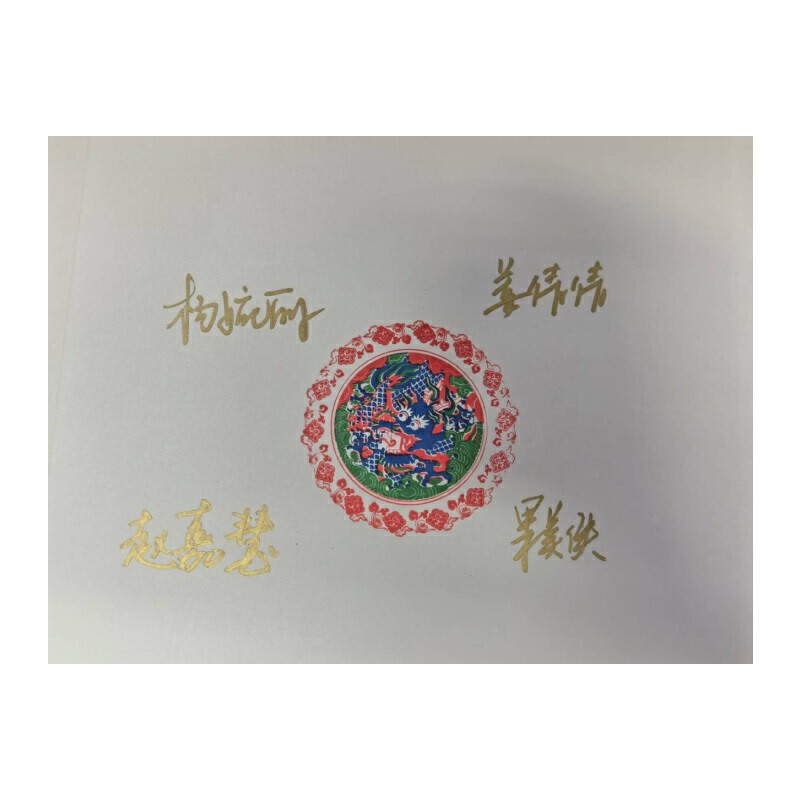 杨婉丽
姜倩倩
赵嘉慧
美侠